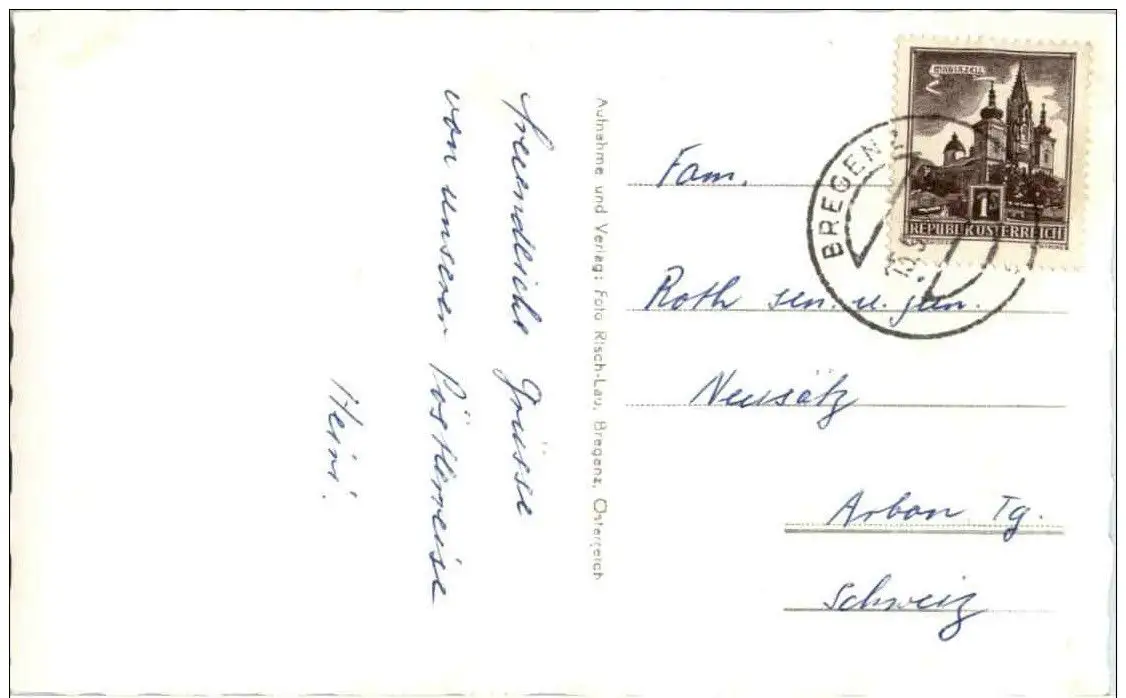 Freundliche Grüsse
von unserer Pöstlerreise
Heini.
Aufnahme und Verlag: Foto Risch-Lau, Bregenz, Österreich
Fam.
Roth sen. u. jun.
Neusätz
Arbon, Tg.
Schweiz
MARIAZELL
1S
REPUBLIK ÖSTERREICH
BREGEN